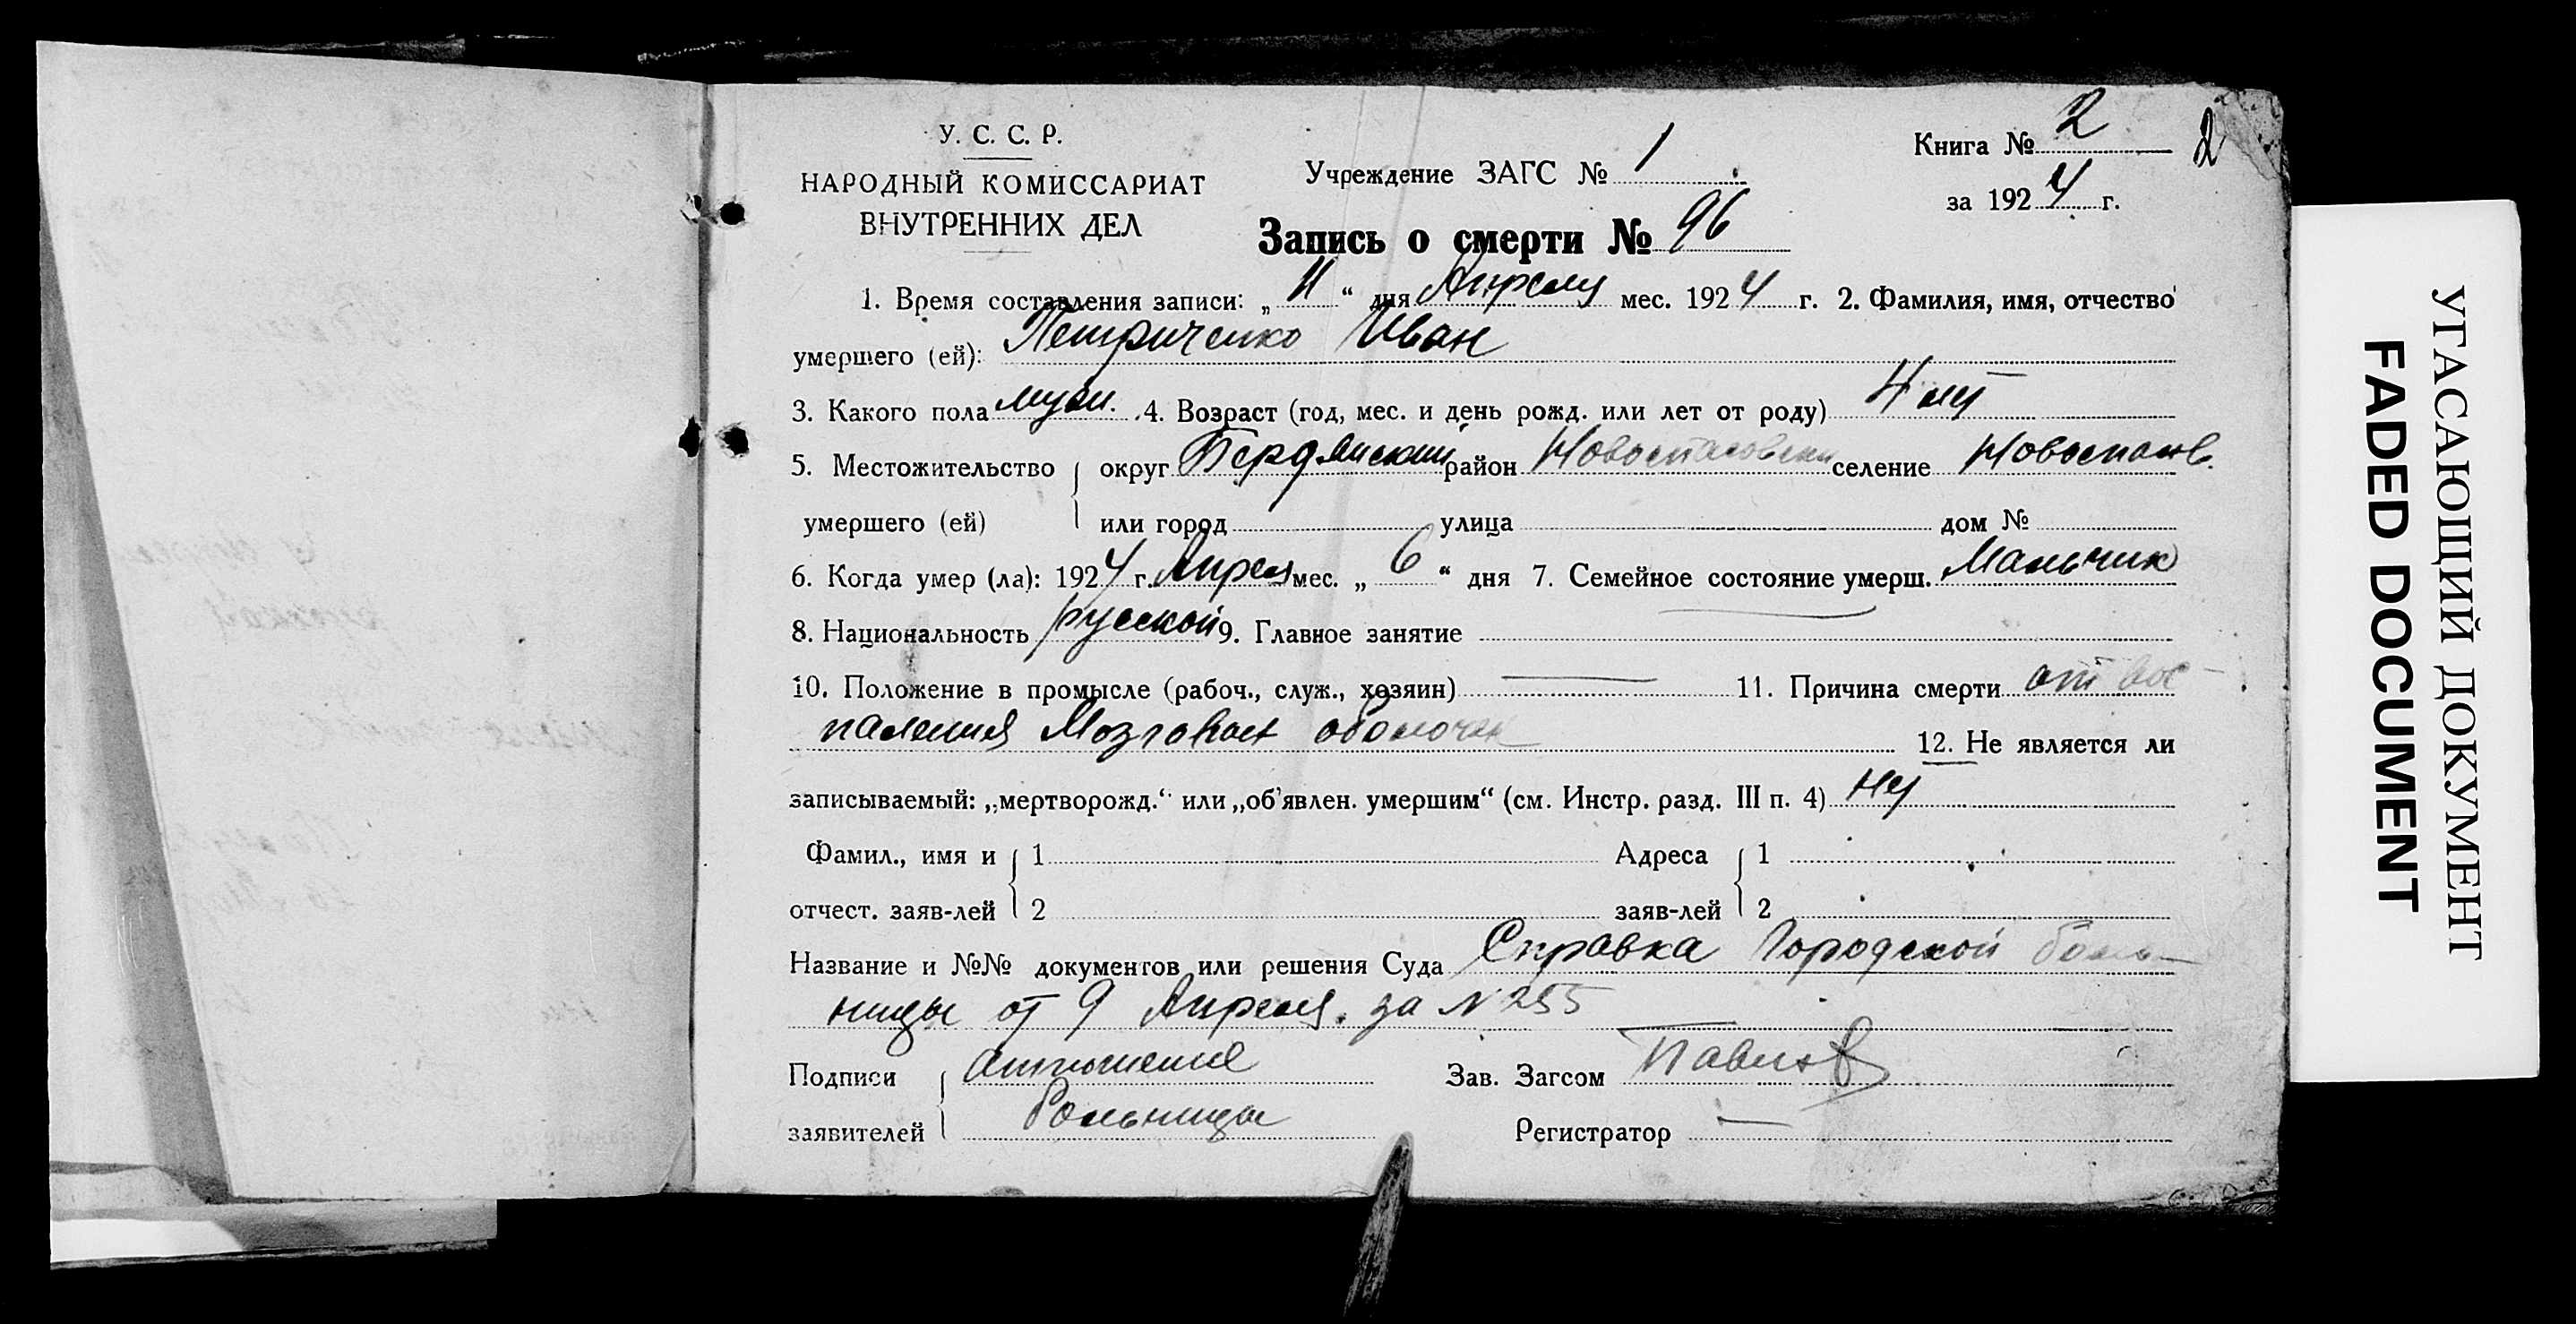 У. С. С. Р.
НАРОДНЫЙ КОМИССАРИАТ
ВНУТРЕННИХ ДЕЛ
Учреждение ЗАГС № 1
Книга № 2
2
за 1924 г.
Запись о смерти № 96
1. Время составления записи: „11“ дня Апреля мес. 1924 г. 2. Фамилия, имя, отчество
умершего (ей): Петриченко Иван
3. Какого пола муж. 4. Возраст (год, мес. и день рожд. или лет от роду) 4 лет
5. Местожительство округ Бердянский район Новоспасовски селение Новоспасов.
умершего (ей) или город улица дом №
6. Когда умер (ла): 1924 г. Апреля мес. „6“ дня 7. Семейное состояние умерш. Мальчик
8. Национальность русской 9. Главное занятие —
10. Положение в промысле (рабоч., служ., хозяин) — 11. Причина смерти от вос-
паления Мозговых оболочек 12. Не является ли
записываемый: „мертворожд.“ или „об'явлен. умершим“ (см. Инстр. разд. III п. 4) нет
Фамил., имя и 1 Адреса 1
отчест. заяв-лей 2 заяв-лей 2
Название и №№ документов или решения Суда Справка Городской боль-
ницы от 9 Апреля. за N 255
Подписи отношение Зав. Загсом
заявителей больницы Регистратор —
УГАСАЮЩИЙ ДОКУМЕНТ
FADED DOCUMENT